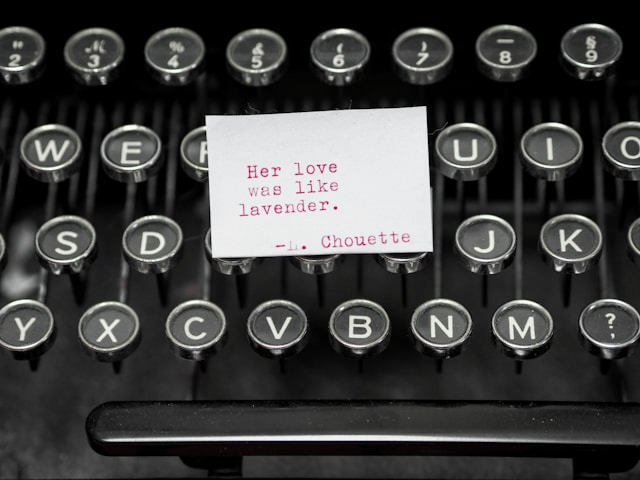 " 2
M 3
% 4
& 5
( 6
) 7
— 8
§ 9
W E U I O
Her love
was like
lavender.
-L. Chouette
S D J K
Y X C V B N M ? ;